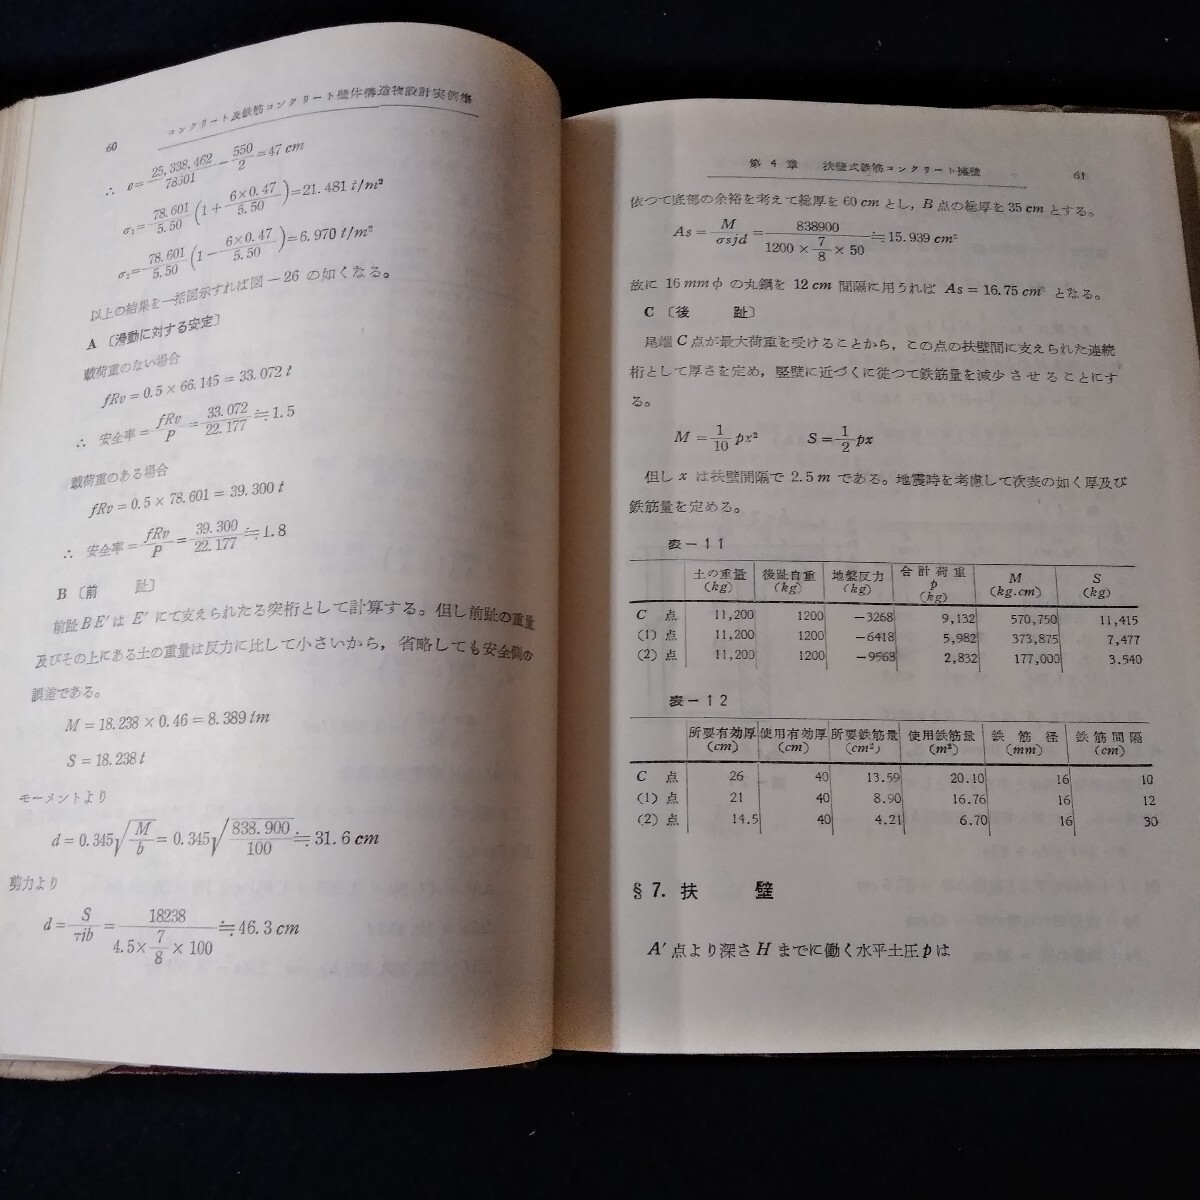 60 コンクリート及鉄筋コンクリート壁体構造物設計実例集
∴ e=25,338,462/78601−550/2=47 cm
σ₁=78.601/5.50(1+6×0.47/5.50)=21.481 t/m²
σ₂=78.601/5.50(1−6×0.47/5.50)=6.970 t/m²
以上の結果を一括図示すれば図−26 の如くなる。
A 〔滑動に対する安定〕
載荷重のない場合
fRv=0.5×66.145=33.072 t
∴ 安全率=fRv/P=33.072/22.177≒1.5
載荷重のある場合
fRv=0.5×78.601=39.300 t
∴ 安全率=fRv/P=39.300/22.177≒1.8
B 〔前 趾〕
前趾BE′は E′ にて支えられたる突桁として計算する。但し前趾の重量
及びその上にある土の重量は反力に比して小さいから，省略しても安全側の
誤差である。
M=18.238×0.46=8.389 tm
S=18.238 t
モーメントより
d=0.345√M/b=0.345√838.900/100≒31.6 cm
剪力より
d=S/τjb=18238/4.5×7/8×100≒46.3 cm
第 4 章 扶壁式鉄筋コンクリート擁壁 61
依つて底部の余裕を考えて総厚を 60 cm とし，B点の総厚を 35 cm とする。
As=M/σsjd=838900/1200×7/8×50≒15.939 cm²
故に 16 mm φ の丸鋼を 12 cm 間隔に用うれば As=16.75 cm² となる。
C 〔後 趾〕
尾端C点が最大荷重を受けることから，この点の扶壁間に支えられた連続
桁として厚さを定め，竪壁に近づくに従つて鉄筋量を減少させることにす
る。
M=1/10 px² S=1/2 px
但し x は扶壁間隔で 2.5 m である。地震時を考慮して次表の如く厚及び
鉄筋量を定める。
表−11
土の重量(kg) 後趾自重(kg) 地盤反力(kg) 合計荷重p(kg) M(kg.cm) S(kg)
C 点 11,200 1200 −3268 9,132 570,750 11,415
(1) 点 11,200 1200 −6418 5,982 373,875 7,477
(2) 点 11,200 1200 −9568 2,832 177,000 3.540
表−12
所要有効厚(cm) 使用有効厚(cm) 所要鉄筋量(cm²) 使用鉄筋量(m²) 鉄筋径(mm) 鉄筋間隔(cm)
C 点 26 40 13.59 20.10 16 10
(1) 点 21 40 8.90 16.76 16 12
(2) 点 14.5 40 4.21 6.70 16 30
§7. 扶 壁
A′点より深さ H までに働く水平土圧 p は